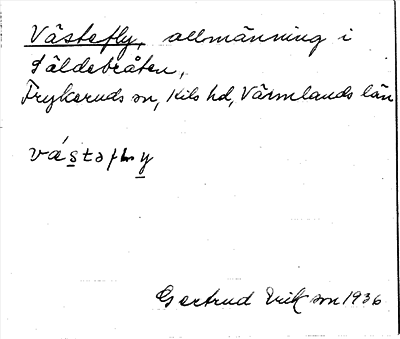 Västefly, allmänning i
Säldebråten,
Frykeruds sn, Kils hd, Värmlands län
Gertrud Erikson 1936